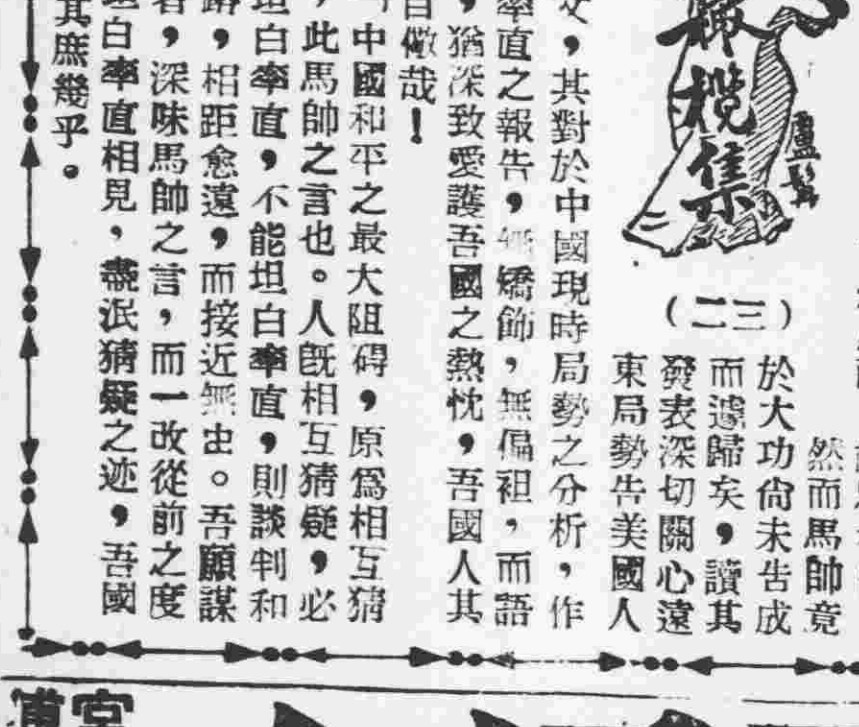 然而馬帥竟
於大功尙未吿成
而遽歸矣，讀其
發表深切關心遠
東局勢吿美國人
，其對於中國現時局勢之分析，作
率直之報告，無矯飾，無偏袒，而語
，猶深致愛護吾國之熱忱，吾國人其
自儆哉！
中國和平之最大阻碍，原爲相互猜
，此馬帥之言也。人旣相互猜疑，必
坦白率直，不能坦白率直，則談判和
路，相距愈遠，而接近無由。吾願謀
者，深味馬帥之言，而一改從前之度
坦白率直相見，盡泯猜疑之迹，吾國
其庶幾乎。
攬集
盧
（二三）
宮